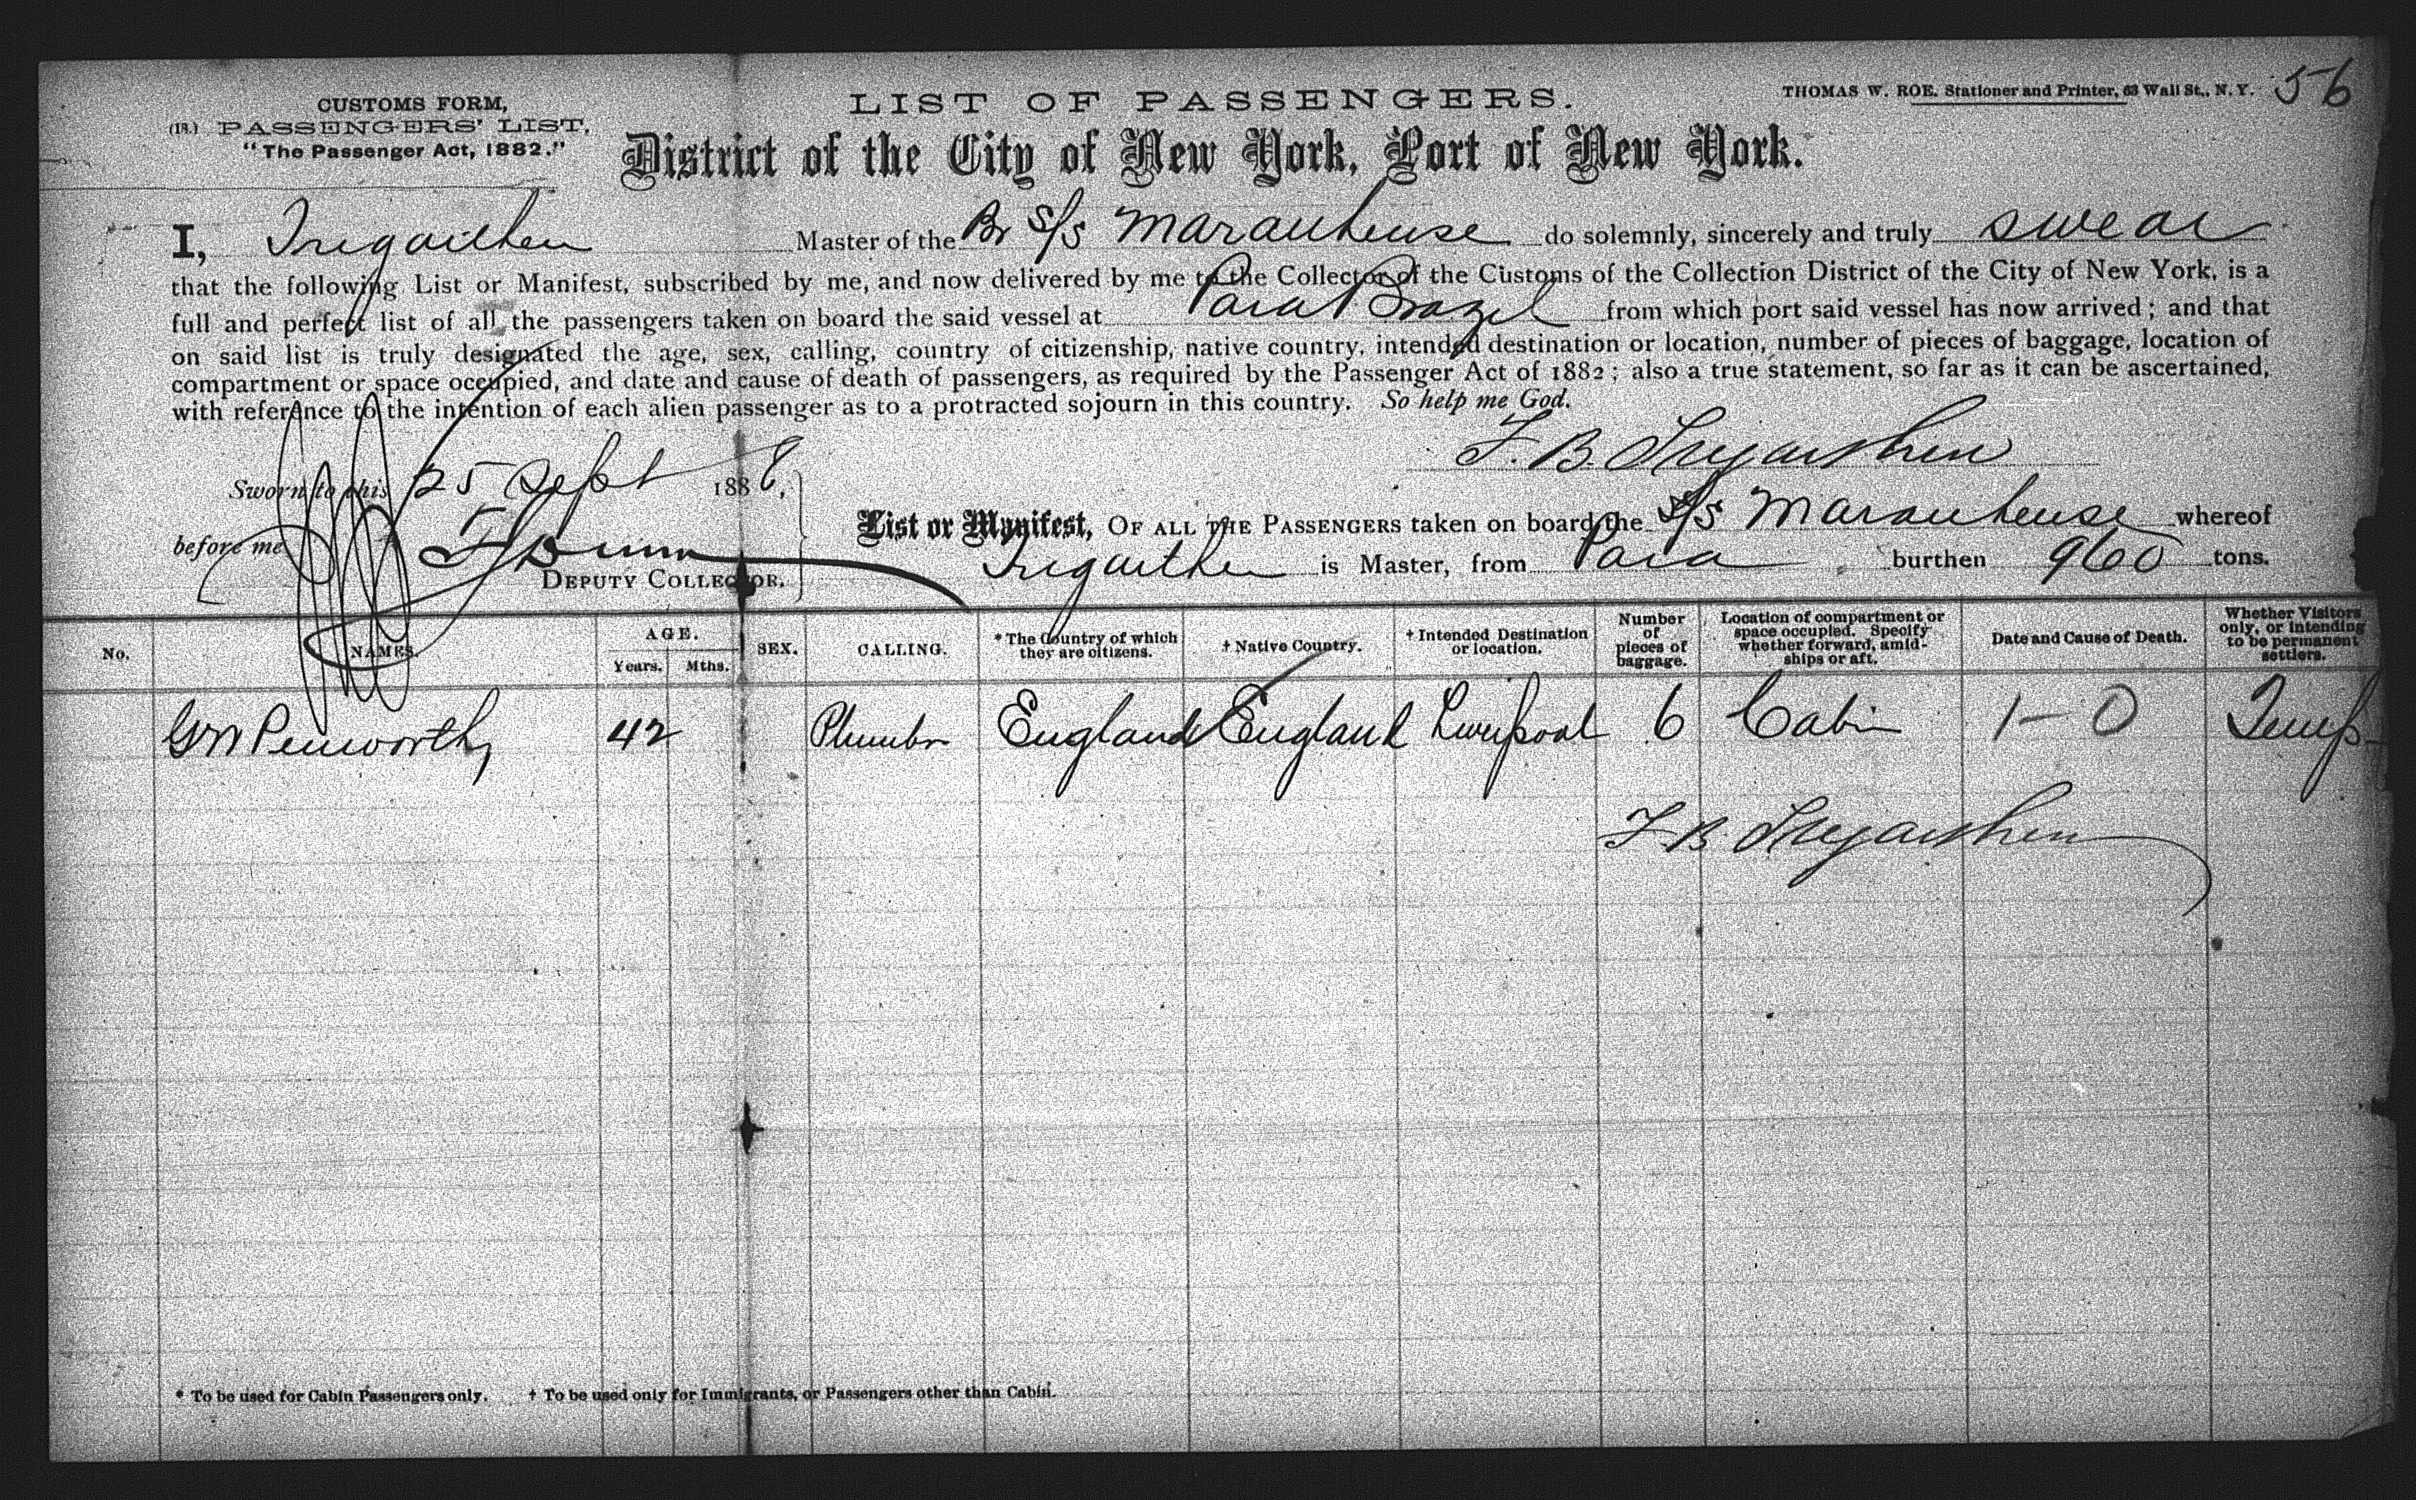 CUSTOMS FORM,
(18.) PASSENGERS' LIST,
"The Passenger Act, 1882."
LIST OF PASSENGERS.
THOMAS W. ROE, Stationer and Printer, 63 Wall St., N. Y. 56
District of the City of New York, Port of New York.
I, Tregarthen Master of the Br S/S Maranhense do solemnly, sincerely and truly swear
that the following List or Manifest, subscribed by me, and now delivered by me to the Collector of the Customs of the Collection District of the City of New York, is a
full and perfect list of all the passengers taken on board the said vessel at Para Brazil from which port said vessel has now arrived; and that
on said list is truly designated the age, sex, calling, country of citizenship, native country, intended destination or location, number of pieces of baggage, location of
compartment or space occupied, and date and cause of death of passengers, as required by the Passenger Act of 1882; also a true statement, so far as it can be ascertained,
with reference to the intention of each alien passenger as to a protracted sojourn in this country. So help me God.
F. B. Tregarthen
Sworn to this 25 Sept 1888,
before me
DEPUTY COLLECTOR.
List or Manifest, OF ALL THE PASSENGERS taken on board the S/S Maranhense whereof
Tregarthen is Master, from Para burthen 960 tons.
No. NAMES. AGE. Years. Mths. SEX. CALLING. *The Country of which they are citizens. † Native Country. † Intended Destination or location. Number of pieces of baggage. Location of compartment or space occupied. Specify whether forward, amidships or aft. Date and Cause of Death. Whether Visitors only, or intending to be permanent settlers.
Penworthy 42 Plumber England England Liverpool 6 Cabin 1-0 Temp
F. B. Tregarthen
* To be used for Cabin Passengers only. † To be used only for Immigrants, or Passengers other than Cabin.